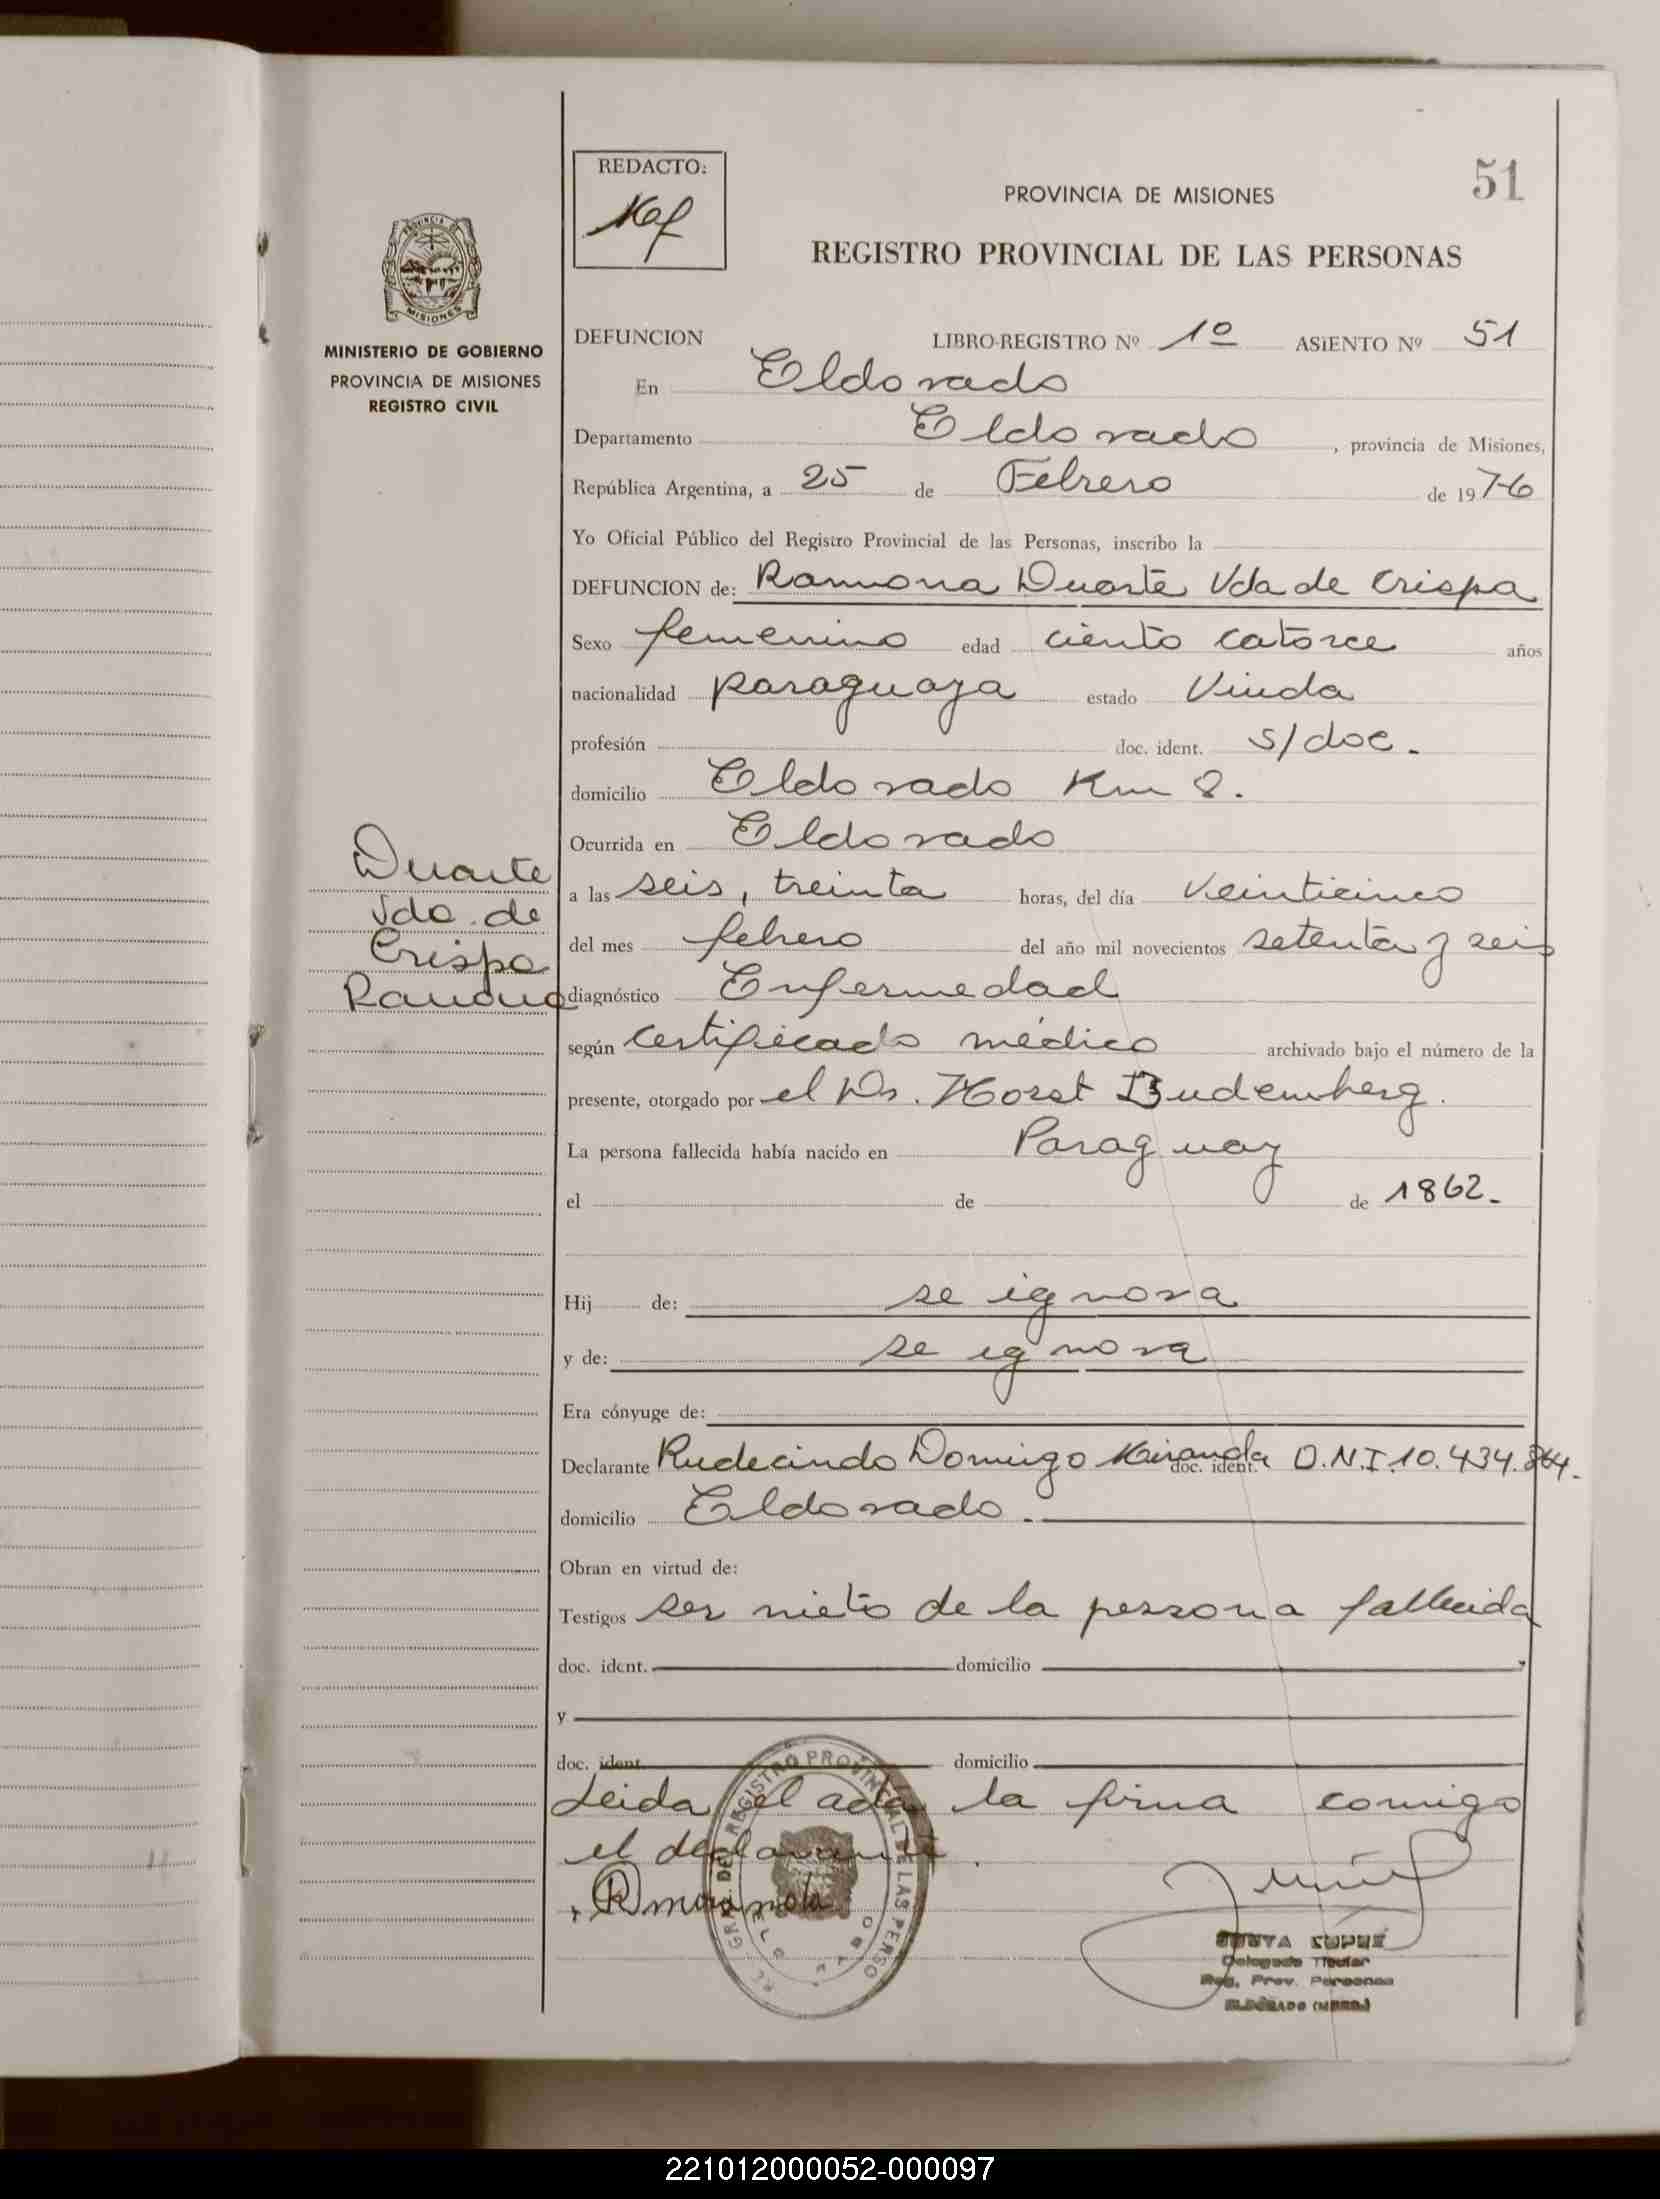 REDACTO:
51
PROVINCIA DE MISIONES
REGISTRO PROVINCIAL DE LAS PERSONAS
PROVINCIA DE
MISIONES
MINISTERIO DE GOBIERNO
PROVINCIA DE MISIONES
REGISTRO CIVIL
DEFUNCION LIBRO-REGISTRO Nº 1º ASIENTO Nº 51
En Eldorado
Departamento Eldorado, provincia de Misiones,
República Argentina, a 25 de Febrero de 1976
Yo Oficial Público del Registro Provincial de las Personas, inscribo la
DEFUNCION de: Ramona Duarte Vda de Crispa
Sexo femenino edad ciento catorce años
nacionalidad paraguaya estado Viuda
profesión doc. ident. s/doc.
domicilio Eldorado Km 8.
Ocurrida en Eldorado
a las seis, treinta horas, del día veinticinco
del mes febrero del año mil novecientos setenta y seis
diagnóstico Enfermedad
según certificado médico archivado bajo el número de la
presente, otorgado por el Dr. Horst Budemberg.
La persona fallecida había nacido en Paraguay
el de de 1862.-
Hij de: se ignora
y de: se ignora
Era cónyuge de:
Declarante Rudecindo Domingo Miranda doc. ident. D.N.I. 10.434.
domicilio Eldorado.
Obran en virtud de:
Testigos ser nieto de la persona fallecida
doc. ident. domicilio
y
doc. ident. domicilio
Leida el acta, la firma conmigo
el declarante.
Duarte
Vda. de
Crispa
Ramona
DEL REGISTRO PROVINCIAL DE LAS PERSO
Delegado Titular
Reg. Prov. Personas
ELDORADO (MNES.)
221012000052-000097